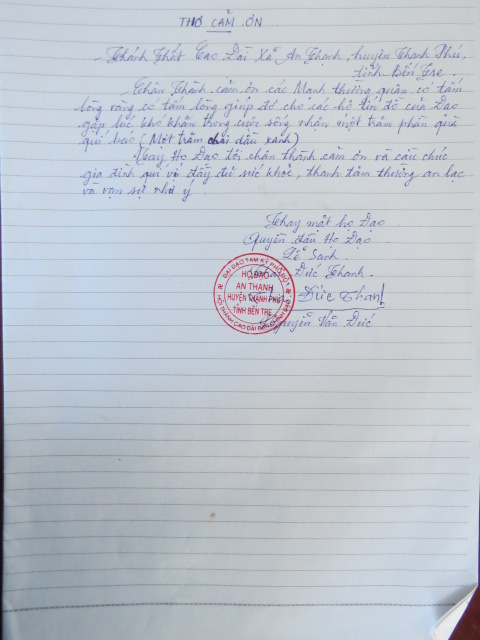 THƠ CẢM ƠN
- Thánh Thất Cao Đài Xã An Thạnh, huyện Thạnh Phú,
tỉnh Bến Tre.
- Chân Thành cảm ơn các Mạnh thường quân có tấm
lòng vàng có tấm lòng giúp đỡ cho các hộ tín đồ của Đạo
gặp lúc khó khăn trong cuộc sống nhận một trăm phần quà
quí báo (Một trăm chai dầu xanh)
Thay Họ Đạo tôi chân thành cảm ơn và cầu chúc
gia đình quí vị đầy đủ sức khỏe, thanh tâm thường an lạc
và vạn sự như ý.
Thay mặt họ Đạo
Quyền đầu Họ Đạo
Lễ Sanh
Đức Thanh
ĐẠI ĐẠO TAM KỲ PHỔ ĐỘ
HỌ ĐẠO
AN THẠNH
HUYỆN THẠNH PHÚ
TỈNH BẾN TRE
HỘI THÁNH CAO ĐÀI
Đức Thanh
Nguyễn Văn Đức